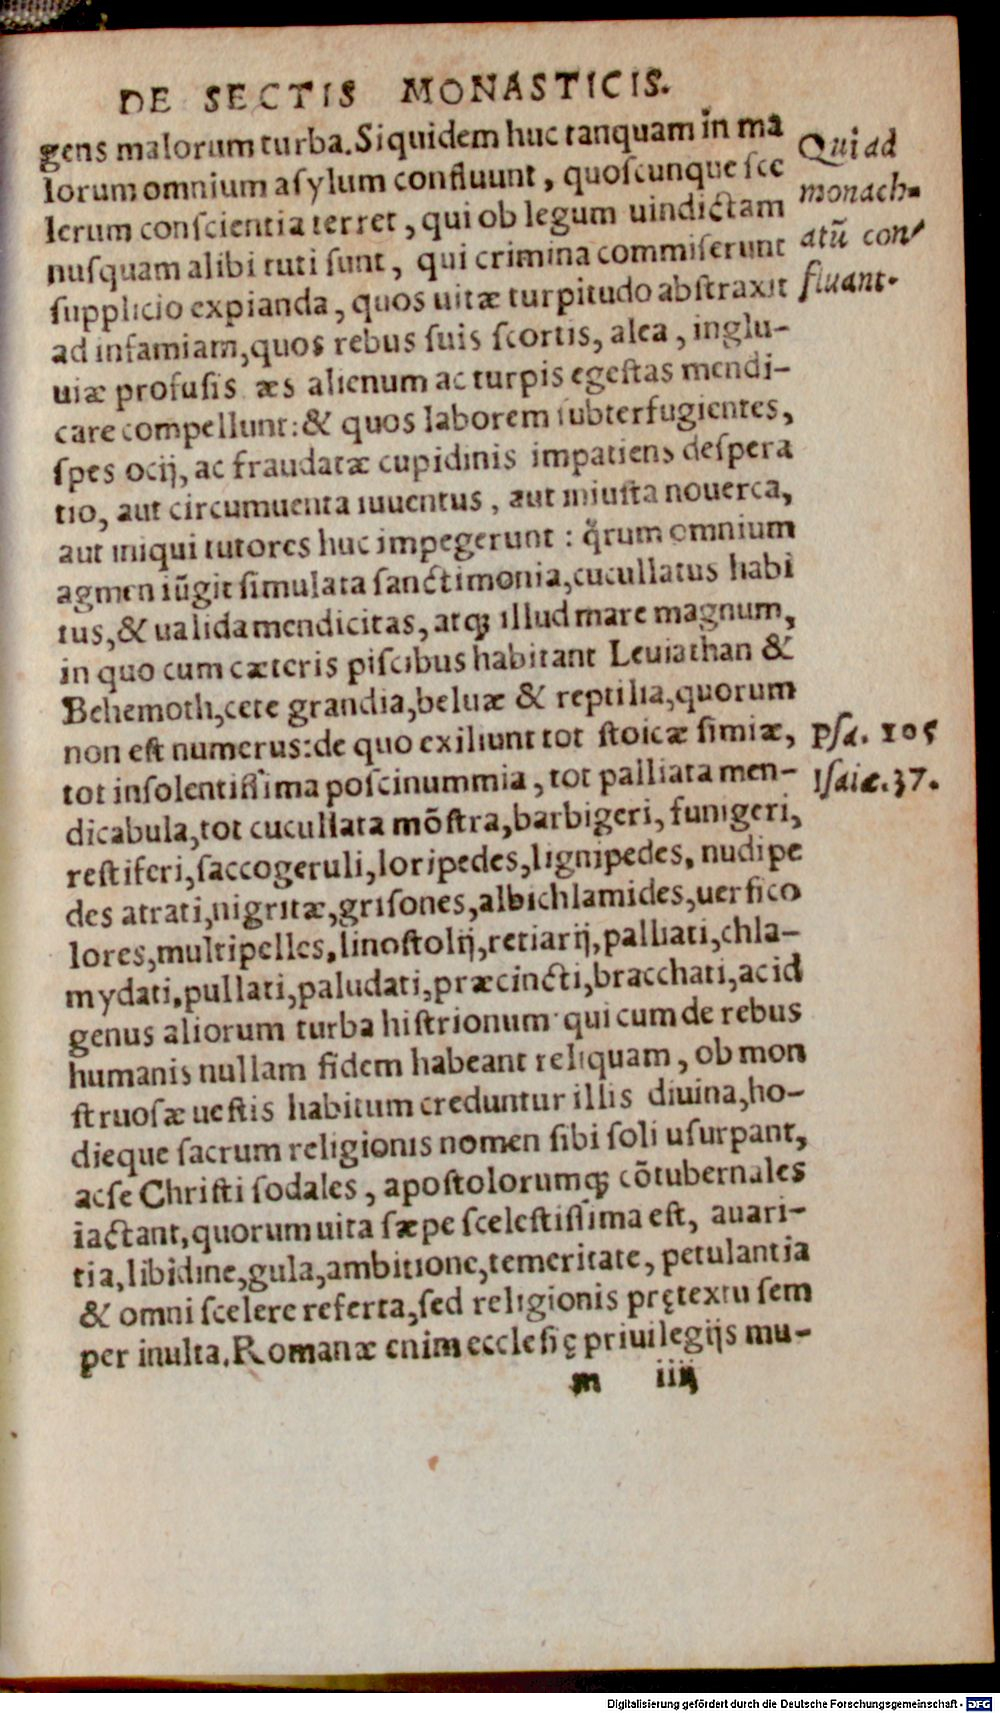 DE SECTIS MONASTICIS.
gens malorum turba. Siquidem huc tanquam in ma
lorum omnium asylum confluunt, quoscunque sce
lerum conscientia terret, qui ob legum uindictam
nusquam alibi tuti sunt, qui crimina commiserunt
supplicio expianda, quos uitæ turpitudo abstraxit
ad infamiam, quos rebus suis scortis, alea, inglu-
uiæ profusis æs alienum ac turpis egestas mendi-
care compellunt: & quos laborem subterfugientes,
spes ocij, ac fraudatæ cupidinis impatiens despera
tio, aut circumuenta iuuentus, aut iniusta nouerca,
aut iniqui tutores huc impegerunt: q̃rum omnium
agmen iũgit simulata sanctimonia, cucullatus habi
tus, & ualida mendicitas, atq; illud mare magnum,
in quo cum cæteris piscibus habitant Leuiathan &
Behemoth, cete grandia, beluæ & reptilia, quorum
non est numerus: de quo exiliunt tot stoicæ simiæ,
tot insolentissima poscinummia, tot palliata men-
dicabula, tot cucullata mõstra, barbigeri, funigeri,
restiferi, saccogeruli, loripedes, lignipedes, nudipe
des atrati, nigritæ, grisones, albichlamides, uersico
lores, multipelles, linostolij, retiarij, palliati, chla-
mydati, pullati, paludati, præcincti, bracchati, ac id
genus aliorum turba histrionum qui cum de rebus
humanis nullam fidem habeant reliquam, ob mon
struosæ uestis habitum creduntur illis diuina, ho-
dieque sacrum religionis nomen sibi soli usurpant,
ac se Christi sodales, apostolorumq; cõtubernales
iactant, quorum uita sæpe scelestissima est, auari-
tia, libidine, gula, ambitione, temeritate, petulantia
& omni scelere referta, sed religionis prętextu sem
per inulta. Romanæ enim ecclesię priuilegijs mu-
m iiij
Qui ad
monach-
atũ con-
fluant.
Psa. 105
Isaiæ. 37.
Digitalisierung gefördert durch die Deutsche Forschungsgemeinschaft - DFG